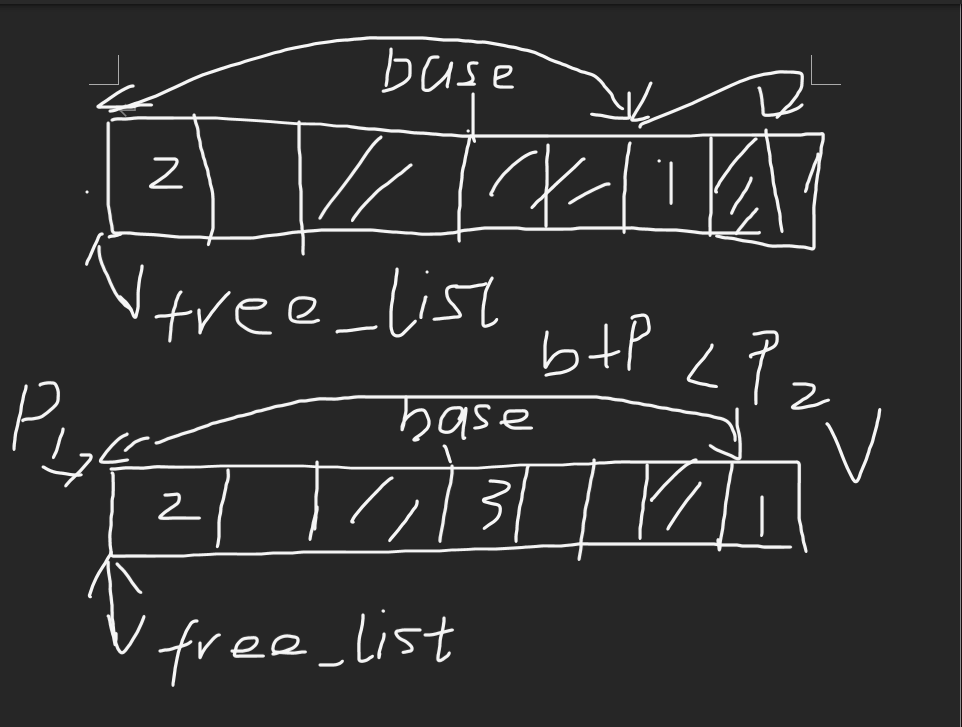 base
2 1
free_list
b+P < P2
P1
base
2 3 1
free_list